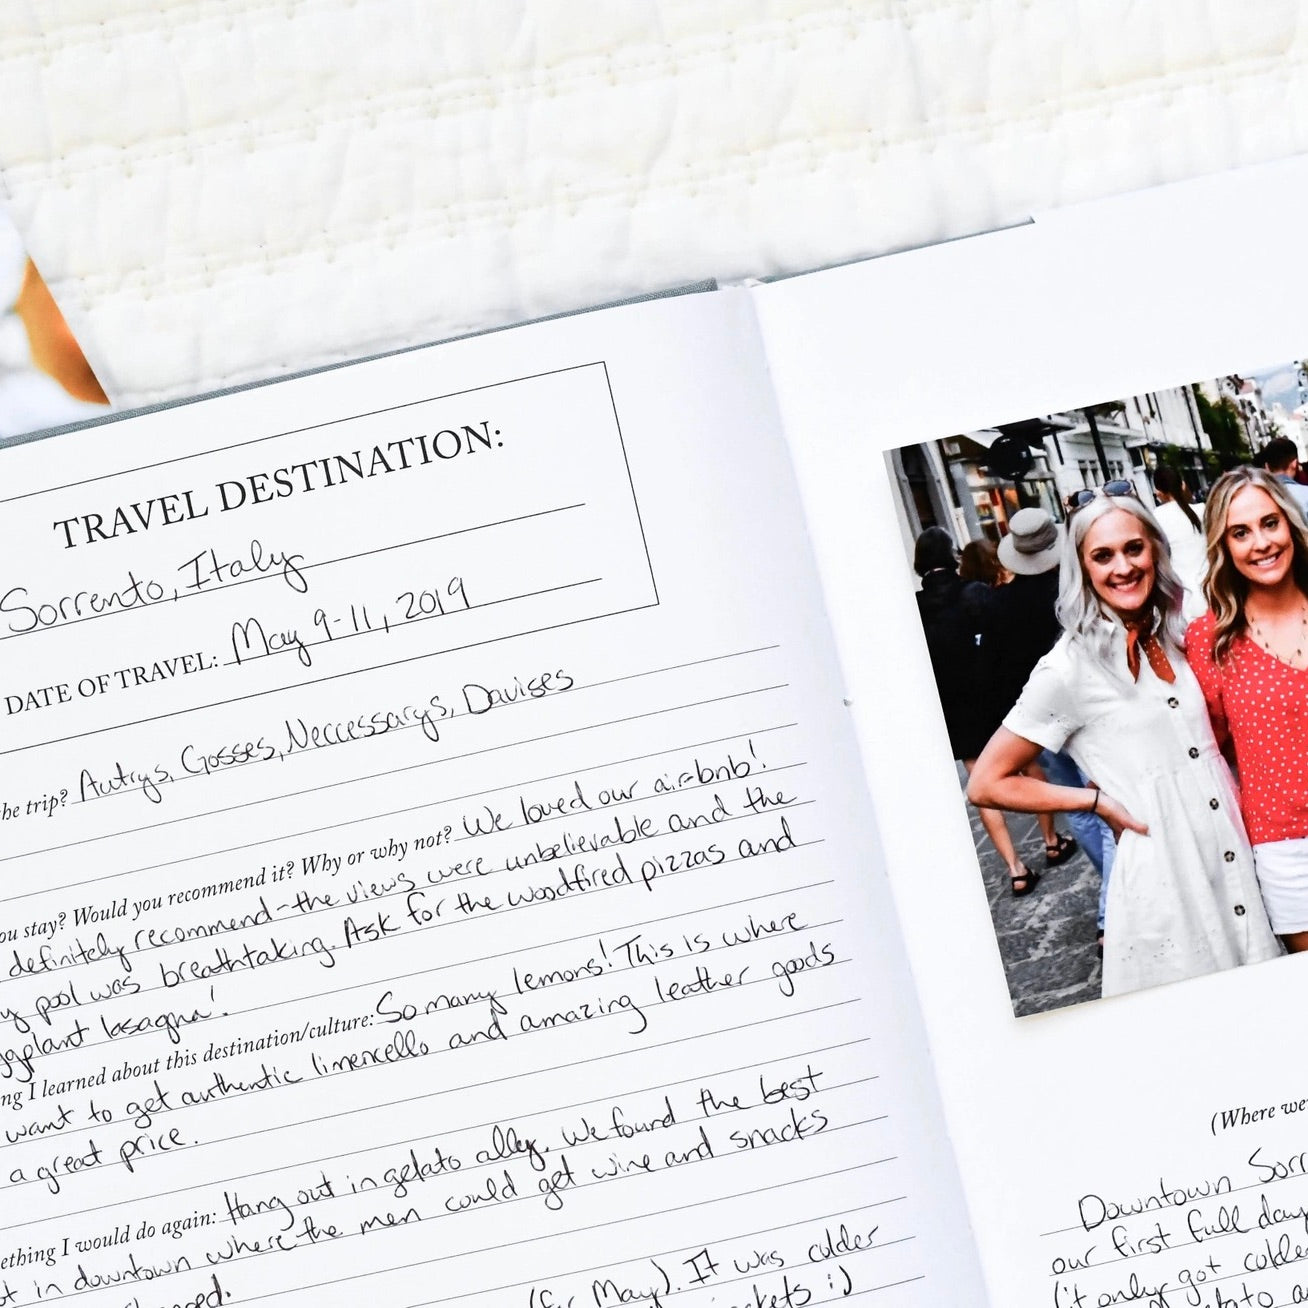 TRAVEL DESTINATION:
Sorrento, Italy
DATE OF TRAVEL: May 9-11, 2019
he trip? Autrys, Gosses, Neccessarys, Davises
ou stay? Would you recommend it? Why or why not? We loved our airbnb!
definitely recommend - the views were unbelievable and the
y pool was breathtaking. Ask for the woodfired pizzas and
ggplant lasagna!
ng I learned about this destination/culture: So many lemons! This is where
want to get authentic limencello and amazing leather goods
a great price.
ething I would do again: Hang out in gelato alley. We found the best
t in downtown where the men could get wine and snacks
(for May). It was colder
ckets :)
(Where we
Downtown Sorr
our first full day
(it only got colde